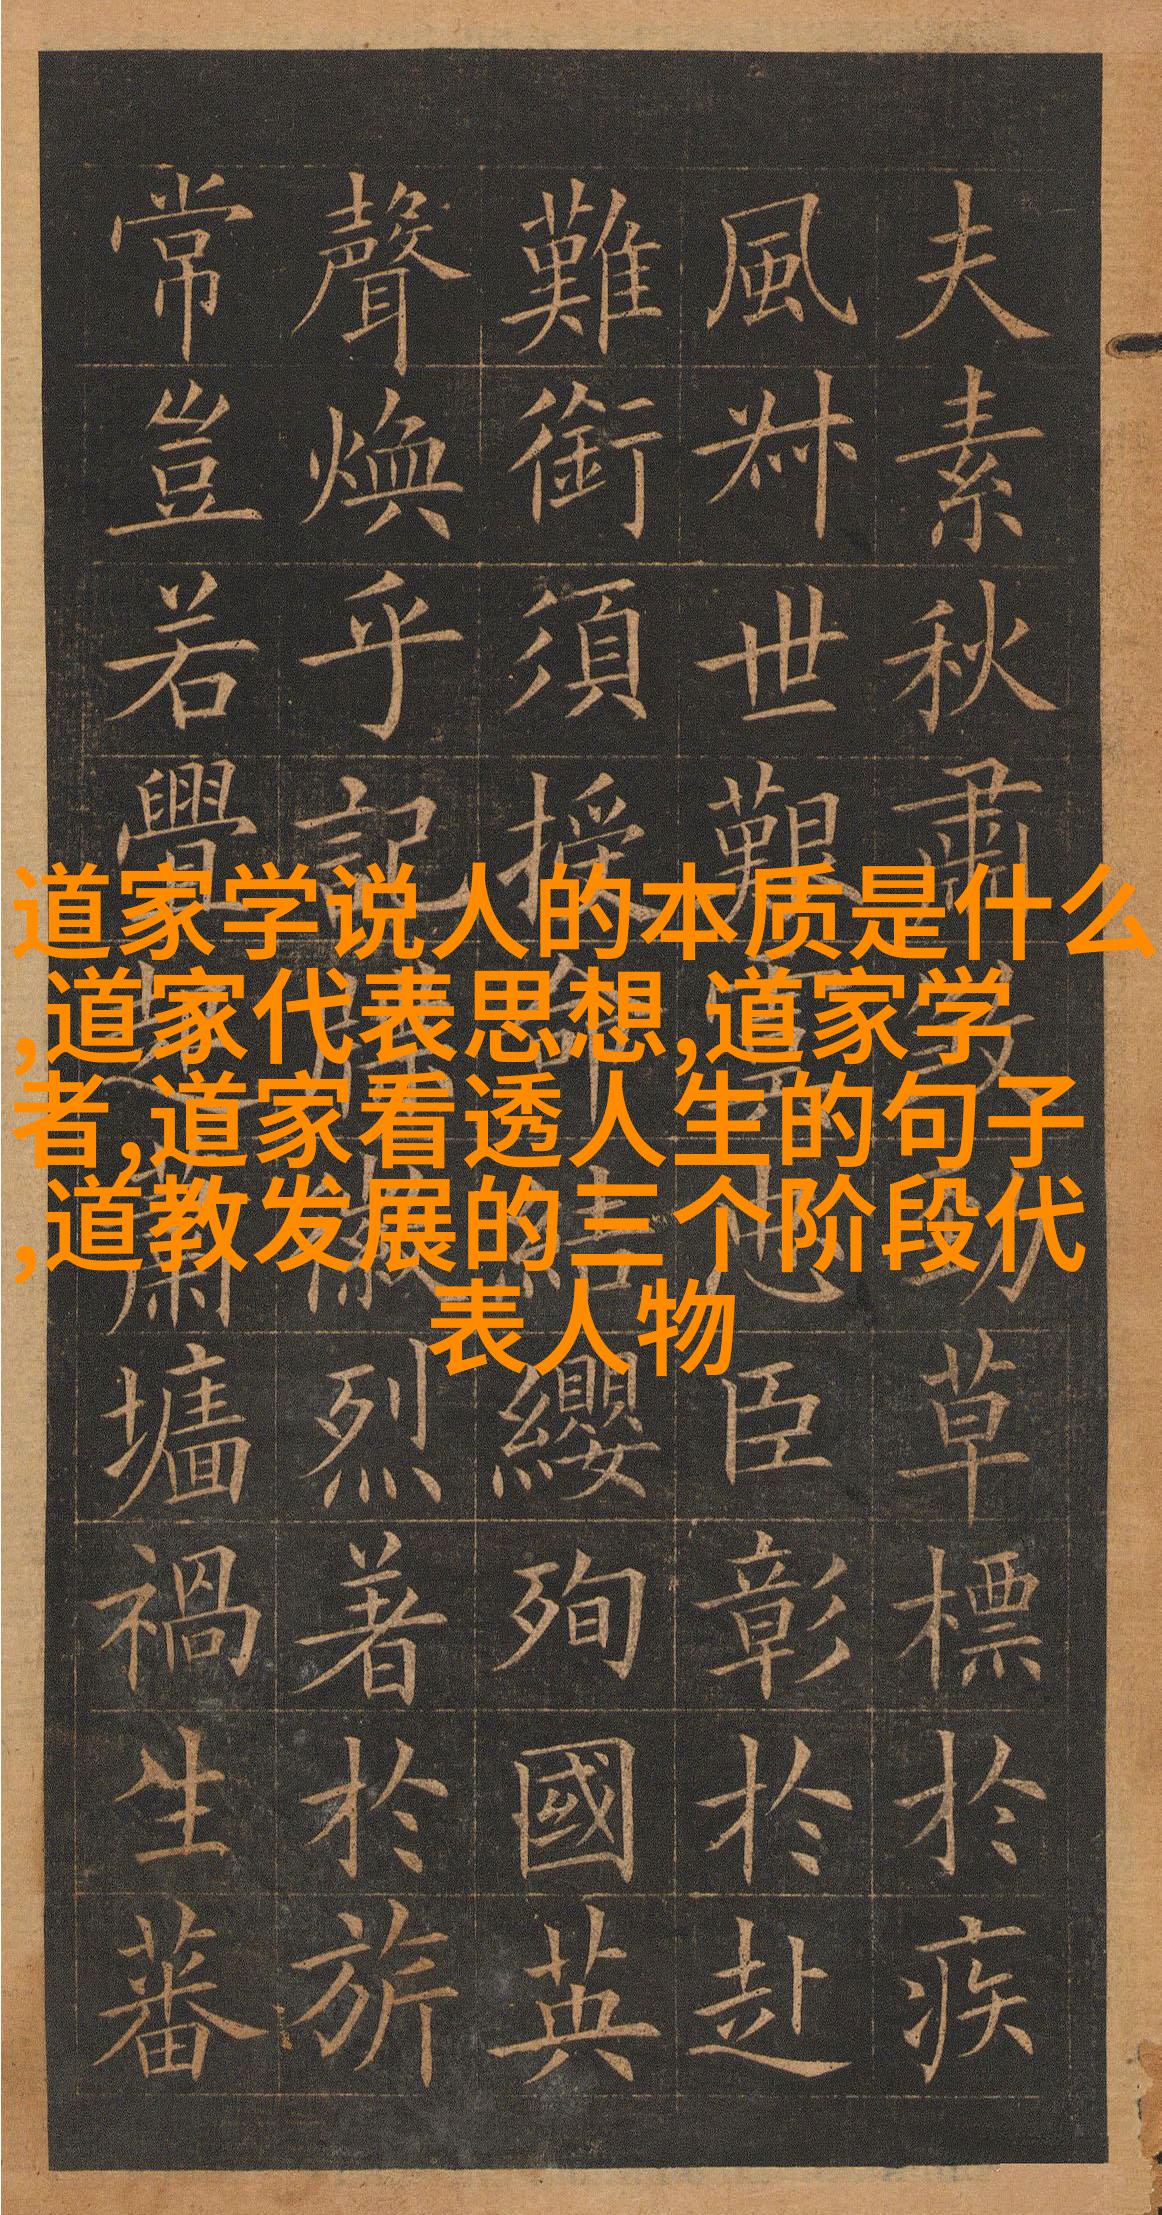 夫素秋肅煞勁草標於疾
風叔世艱虞忠臣彰於赴
難銜須授命結纓殉國英
聲煥乎記牒徽烈著於旂
常豈若釁起蕭墻禍生蕃
道家学说人的本质是什么
,道家代表思想,道家学
者,道家看透人生的句子
,道教发展的三个阶段代
表人物